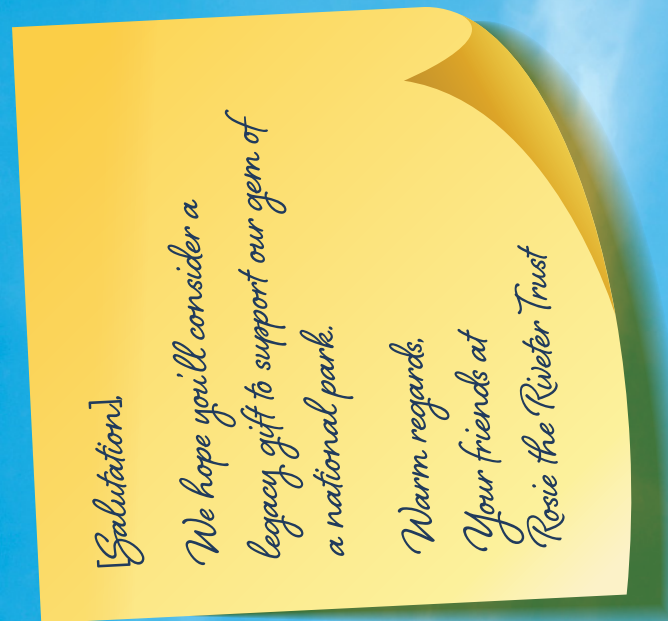 [Salutation],
We hope you'll consider a
legacy gift to support our gem of
a national park.
Warm regards,
Your friends at
Rosie the Riveter Trust